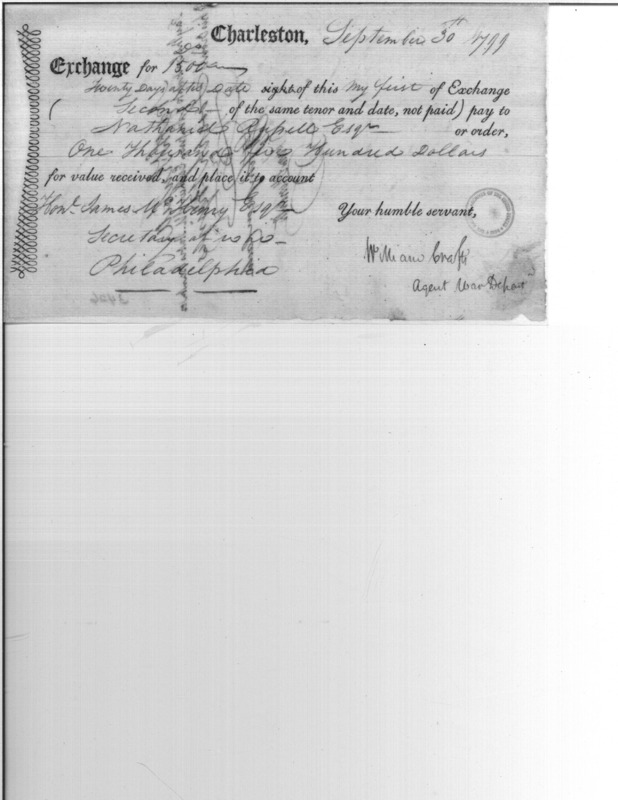 Charleston, September 30th 1799
Exchange for 1500
Twenty Days after Date sight of this My first of Exchange
( Second of the same tenor and date, not paid) pay to
Nathaniel Russell Esqr or order,
One Thousand five Hundred Dollars
for value received, and place it to account
Honl. James McHenry Esqr Your humble servant,
Secretary at War
Philadelphia
William Crafts
Agent War Depart